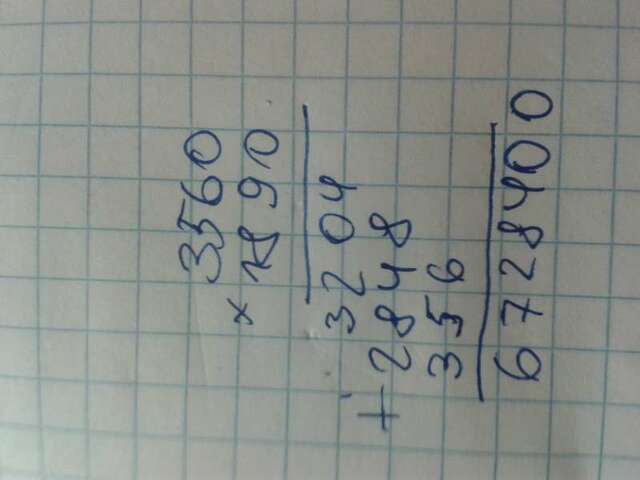 3560
× 1890
3204
+ 2848
356
6728400